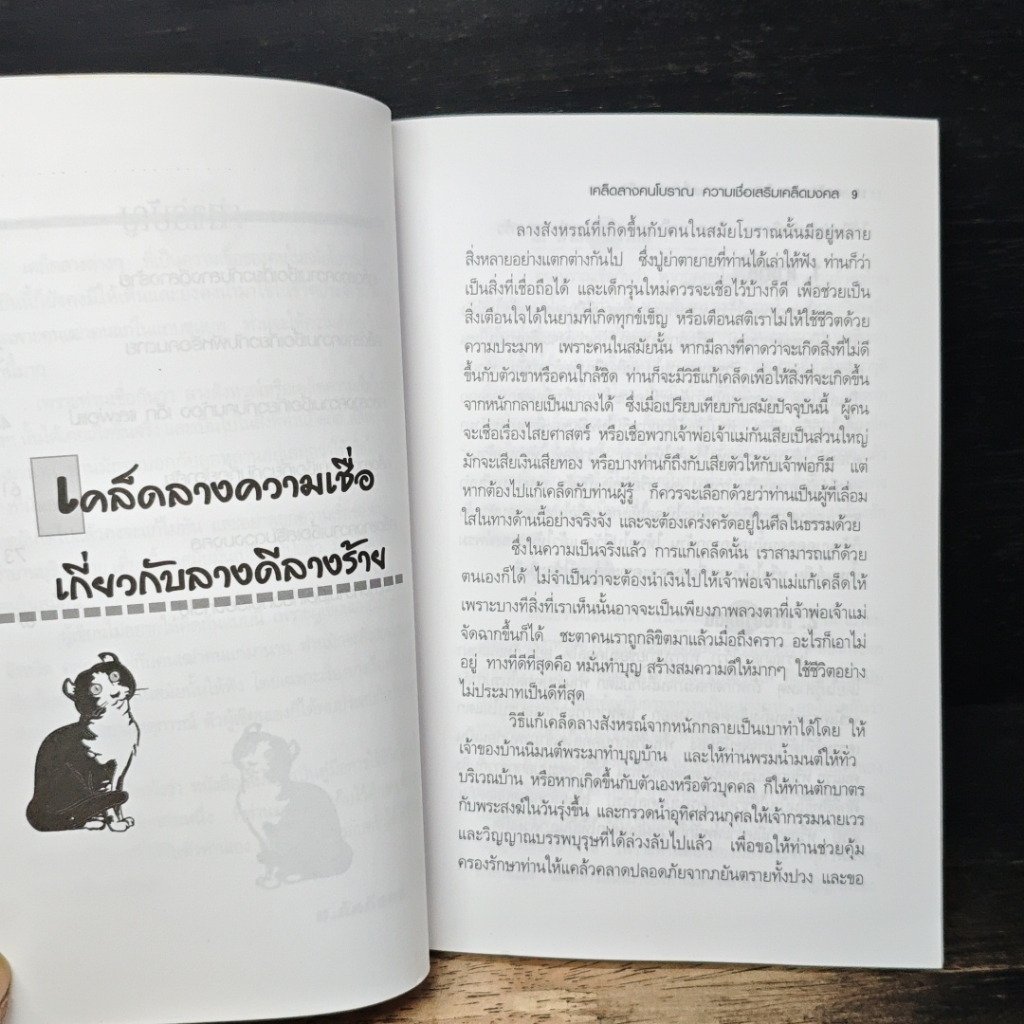 เคล็ดลางความเชื่อ
เกี่ยวกับลางดีลางร้าย
เคล็ดลางคนโบราณ ความเชื่อเสริมเคล็ดมงคล 9
ลางสังหรณ์ที่เกิดขึ้นกับคนในสมัยโบราณนั้นมีอยู่หลาย
สิ่งหลายอย่างแตกต่างกันไป ซึ่งปู่ย่าตายายที่ท่านได้เล่าให้ฟัง ท่านก็ว่า
เป็นสิ่งที่เชื่อถือได้ และเด็กรุ่นใหม่ควรจะเชื่อไว้บ้างก็ดี เพื่อช่วยเป็น
สิ่งเตือนใจได้ในยามที่เกิดทุกข์เข็ญ หรือเตือนสติเราไม่ให้ใช้ชีวิตด้วย
ความประมาท เพราะคนในสมัยนั้น หากมีลางที่คาดว่าจะเกิดสิ่งที่ไม่ดี
ขึ้นกับตัวเขาหรือคนใกล้ชิด ท่านก็จะมีวิธีแก้เคล็ดเพื่อให้สิ่งที่จะเกิดขึ้น
จากหนักกลายเป็นเบาลงได้ ซึ่งเมื่อเปรียบเทียบกับสมัยปัจจุบันนี้ ผู้คน
จะเชื่อเรื่องไสยศาสตร์ หรือเชื่อพวกเจ้าพ่อเจ้าแม่กันเสียเป็นส่วนใหญ่
มักจะเสียเงินเสียทอง หรือบางท่านก็ถึงกับเสียตัวให้กับเจ้าพ่อก็มี แต่
หากต้องไปแก้เคล็ดกับท่านผู้รู้ ก็ควรจะเลือกด้วยว่าท่านเป็นผู้ที่เลื่อม
ใสในทางด้านนี้อย่างจริงจัง และจะต้องเคร่งครัดอยู่ในศีลในธรรมด้วย
ซึ่งในความเป็นจริงแล้ว การแก้เคล็ดนั้น เราสามารถแก้ด้วย
ตนเองก็ได้ ไม่จำเป็นว่าจะต้องนำเงินไปให้เจ้าพ่อเจ้าแม่แก้เคล็ดให้
เพราะบางทีสิ่งที่เราเห็นนั้นอาจจะเป็นเพียงภาพลวงตาที่เจ้าพ่อเจ้าแม่
จัดฉากขึ้นก็ได้ ชะตาคนเราถูกลิขิตมาแล้วเมื่อถึงคราว อะไรก็เอาไม่
อยู่ ทางที่ดีที่สุดคือ หมั่นทำบุญ สร้างสมความดีให้มากๆ ใช้ชีวิตอย่าง
ไม่ประมาทเป็นดีที่สุด
วิธีแก้เคล็ดลางสังหรณ์จากหนักกลายเป็นเบาทำได้โดย ให้
เจ้าของบ้านนิมนต์พระมาทำบุญบ้าน และให้ท่านพรมน้ำมนต์ให้ทั่ว
บริเวณบ้าน หรือหากเกิดขึ้นกับตัวเองหรือตัวบุคคล ก็ให้ท่านตักบาตร
กับพระสงฆ์ในวันรุ่งขึ้น และกรวดน้ำอุทิศส่วนกุศลให้เจ้ากรรมนายเวร
และวิญญาณบรรพบุรุษที่ได้ล่วงลับไปแล้ว เพื่อขอให้ท่านช่วยคุ้ม
ครองรักษาท่านให้แคล้วคลาดปลอดภัยจากภยันตรายทั้งปวง และขอ